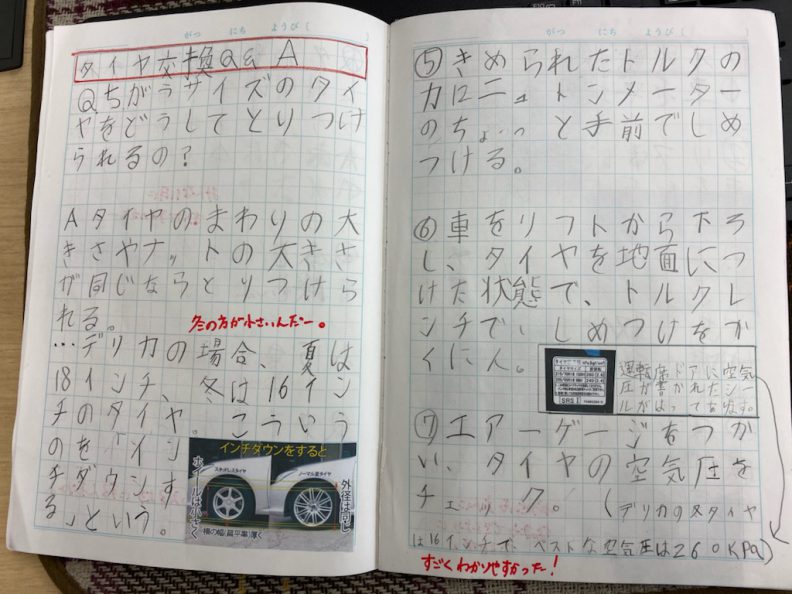 がつ にち ようび(
タイヤ交換Q&A
Qちがうサイズのタイ
ヤをどうしてとりつけ
られるの?
Aタイヤのまわりの大
きさやナットの大きさ
が同じならとりつけら
れる。
冬の方が小さいんだー。
…デリカの場合、夏は
18インチ、冬は16イン
チのタイヤ。こういう
のを「イン
チダウンす
る」という。
インチダウンをすると
スタッドレスタイヤ
ノーマル夏タイヤ
ホイールは小さく
外径は同じ
横の幅(扁平率)厚く
がつ にち ようび(
⑤きめられたトルクの
力(ニュートンメーター
のちょっと手前でしめ
つける。
⑥車をリフトから下ろ
し、タイヤを地面につ
けた状態で、トルクレ
ンチでしめつけをか
くにん。
運転席ドアに空気
圧が書かれたシー
ルがはってあります。
⑦エアーゲージをつか
い、タイヤの空気圧を
チェック。(デリカの冬タイヤ
は16インチで、ベストな空気圧は260KPa)
すごくわかりやすかった!